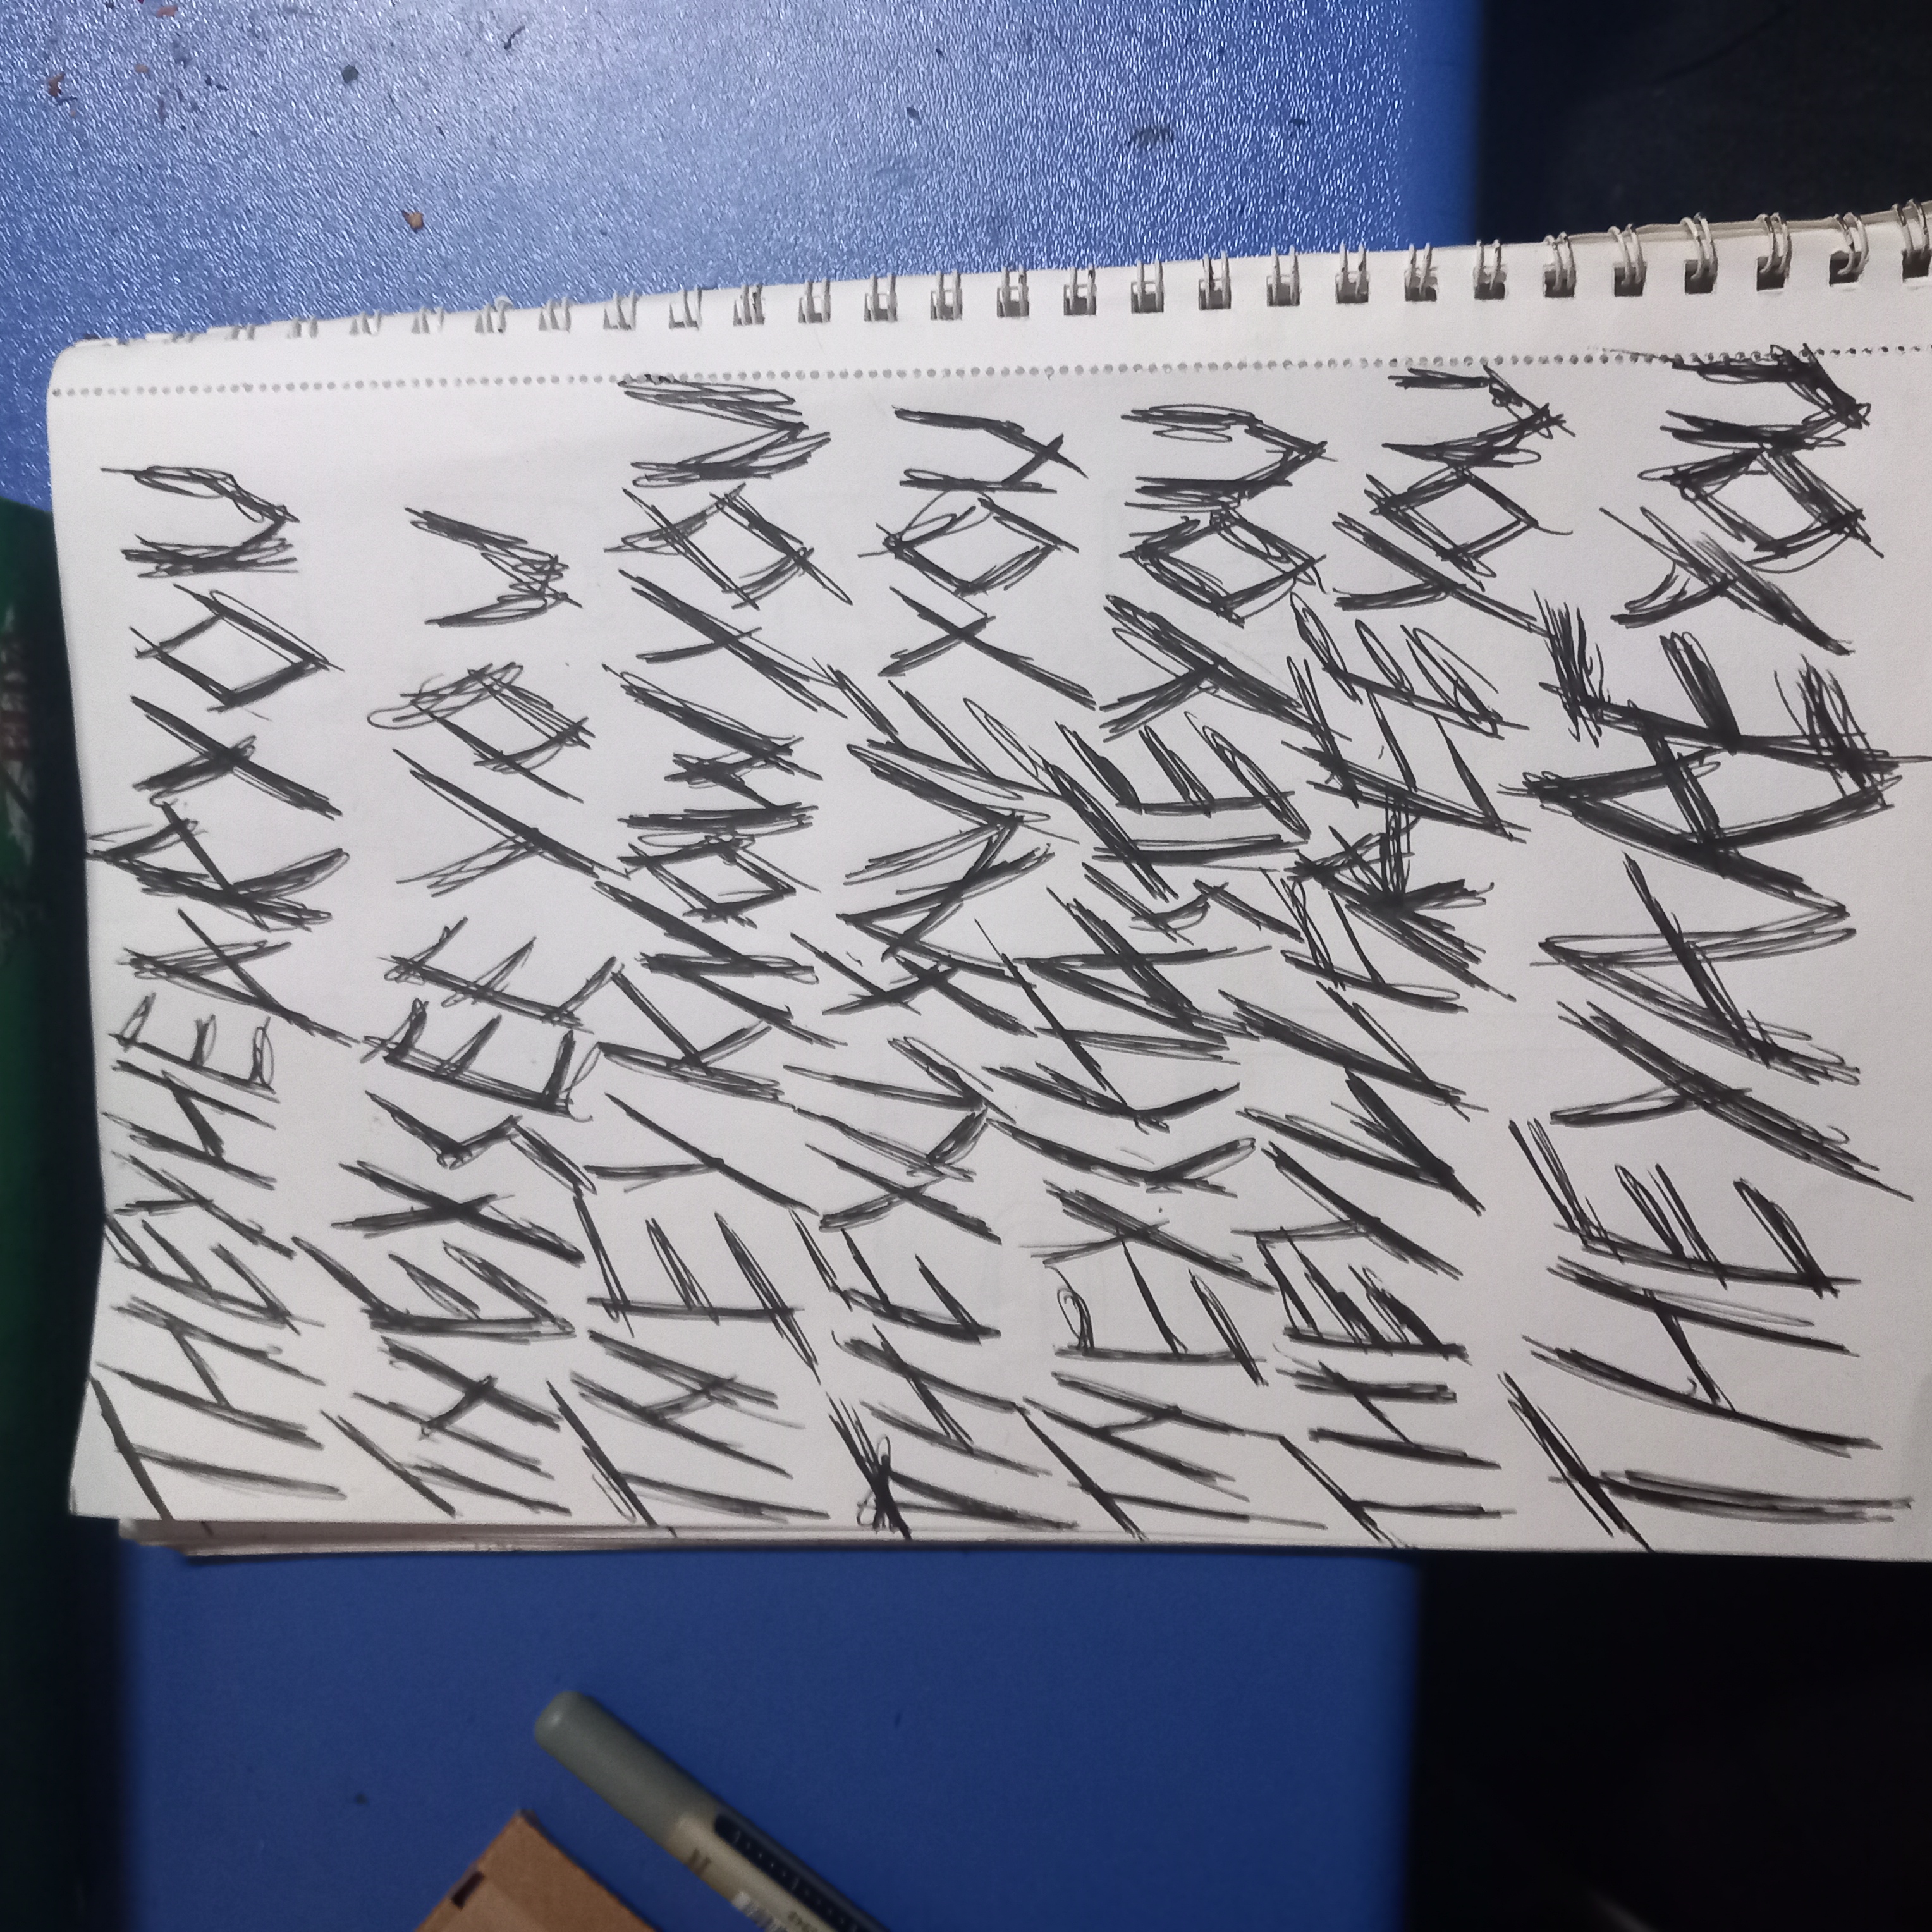 THEY HEAR YOU
THEY SEE YOU
THEY KNOW YOU
THEYLL SAVE YOU
THEY CHASTE YOU
THEYLL FREE YOU
THEY ARE YOU